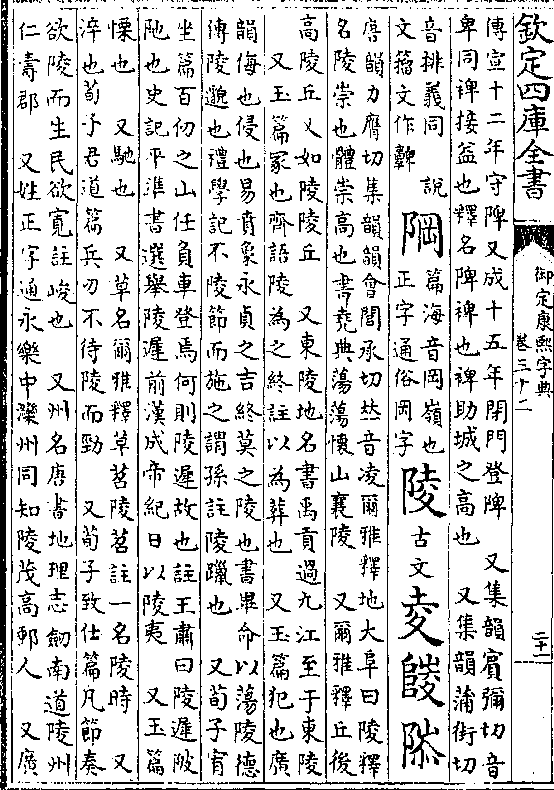 欽定四庫全書
御定康熙字典
卷三十二
二十一
傳宣十二年守陴又成十五年閉門登陴　又集韻賓彌切音
卑同裨接益也釋名陴裨也裨助城之高也　又集韻蒲街切
音排義同　說
文籀文作𩫨
阿
篇海音岡嶺也
正字通俗岡字
陵
古文
夌𨻪𨸬
唐韻力膺切集韻韻會閭承切𠀤音凌爾雅釋地大阜曰陵釋
名陵崇也體崇高也書堯典蕩蕩懷山襄陵　又爾雅釋丘後
高陵丘又如陵陵丘　又東陵地名書禹貢過九江至于東陵
又玉篇冢也齊語陵為之終註以為葬也　又玉篇犯也廣
韻侮也侵也易賁象永貞之吉終莫之陵也書畢命以蕩陵德
傳陵邈也禮學記不陵節而施之謂孫註陵躐也　又荀子宥
坐篇百仞之山任負車登焉何則陵遲故也註王肅曰陵遲陂
阤也史記平準書選舉陵遲前漢成帝紀日以陵夷　又玉篇
慄也　又馳也　又草名爾雅釋草苕陵苕註一名陵時　又
淬也荀子君道篇兵刃不待陵而勁　又荀子致仕篇凡節奏
欲陵而生民欲寬註峻也　又州名唐書地理志劒南道陵州
仁壽郡　又姓正字通永樂中灤州同知陵茂高郵人　又廣